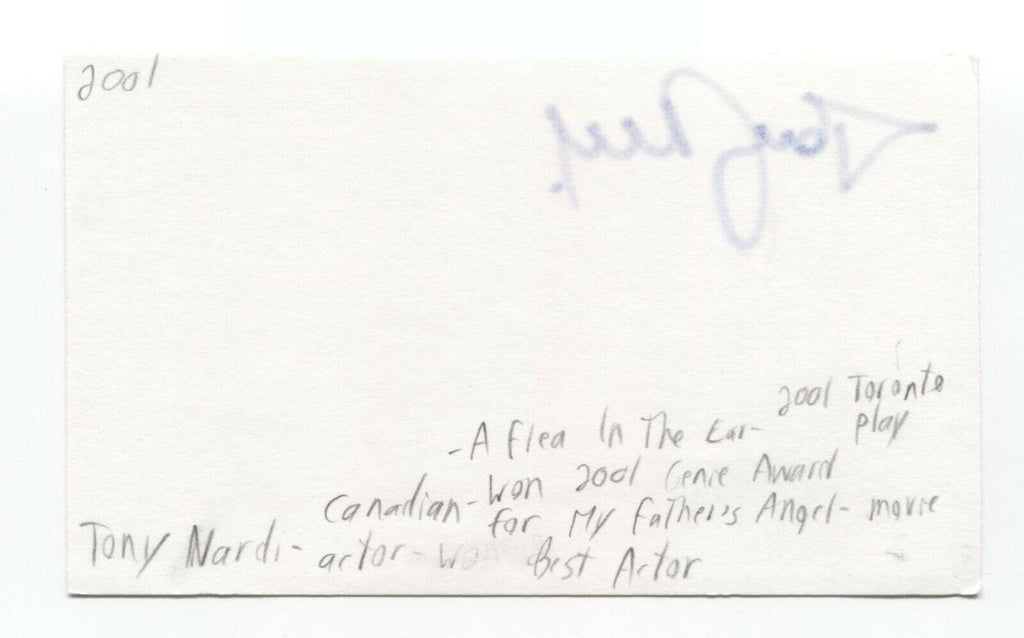 2001
2001 Toronto
- A Flea In The Ear- play
Canadian- Won 2001 Genie Award
for My Father's Angel- movie
Tony Nardi- actor- won Best Actor